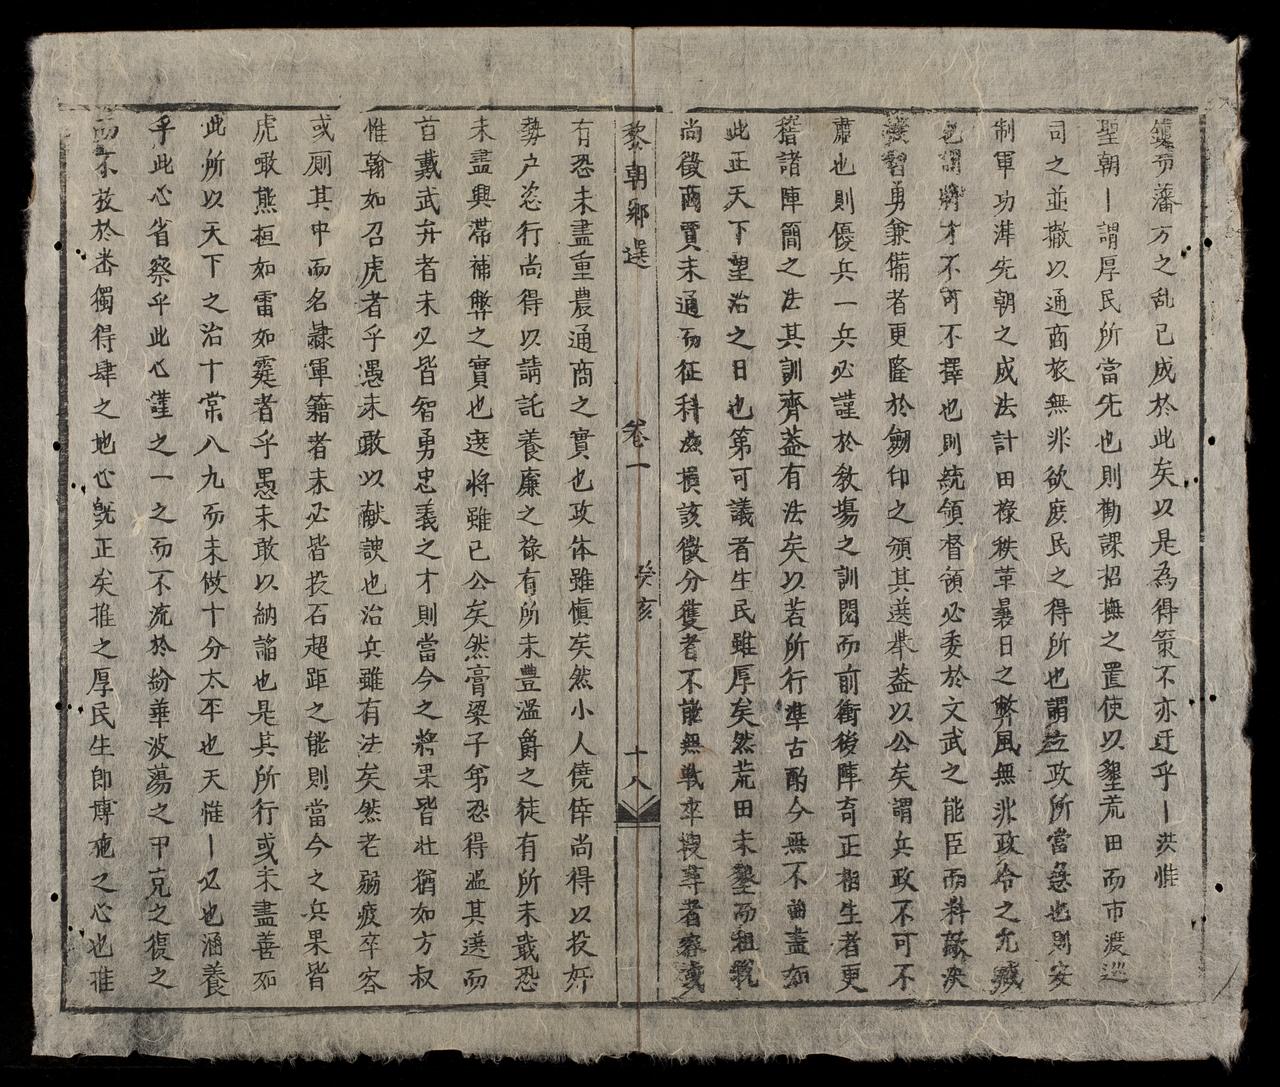 藩方之乱已成於此矣以是為得策不亦迂乎丨洪惟
聖朝丨謂厚民所當先也則勸課招撫之置使以墾荒田而市渡巡
司之並撤以通商旅無非欲庶民之得所也謂立政所當急也則安
制軍功準先朝之成法計田祿秩革曩日之弊風無非政令之允
謂將才不可不擇也則統領督領必委於文武之能臣而料敵決
智勇兼備者更隆於劔印之頒其選舉葢以公矣謂兵政不可不
肅也則優兵一兵必謹於教塲之訓閱而前衝後陣奇正相生者更
稽諸陣簡之法其訓齊葢有法矣以若所行準古酌今無不曲盡如
此正天下望治之日也第可議者生民雖厚矣然荒田未墾而租稅
尚徵商賈未通而征科無損該徵分獲者不能無
黎朝鄉選
卷一
癸亥
十八
有恐未盡重農通商之實也政体雖慎矣然小人僥倖尚得以投奸
勢户恣行尚得以請託養廉之祿有所未豊濫爵之徒有所未戢恐
未盡興滯補弊之實也選将雖已公矣然膏梁子弟恐得濫其選而
首戴武弁者未必皆智勇忠義之才則當今之將果皆壯猶如方叔
惟翰如召虎者乎愚未敢以献諛也治兵雖有法矣然老弱疲卒容
或厠其中而名隷軍籍者未必皆投石超距之能則當今之兵果皆
虎㘎熊桓如雷如霆者乎愚未敢以納諂也是其所行或未盡善如
此所以天下之治十常八九而未做十分太平也天惟丨必也涵養
乎此心省察乎此心謹之一之而不流於紛華波蕩之中克之復之
而不放於幽獨得肆之地心既正矣推之厚民生即博施之心也推